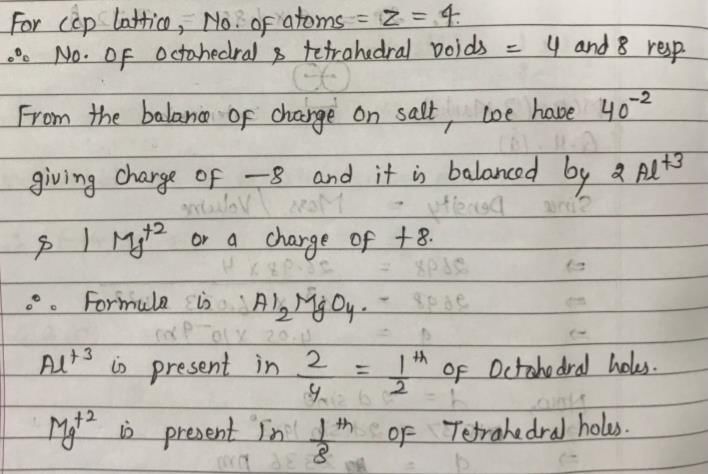 For ccp lattice, No. of atoms = Z = 4.
∴ No. of octahedral & tetrahedral voids = 4 and 8 resp.
From the balance of charge on salt, we have 4O⁻²
giving charge of -8 and it is balanced by 2 Al⁺³
& 1 Mg⁺² or a charge of +8.
∴ Formula is Al₂MgO₄.
Al⁺³ is present in 2/4 = 1/2 th of Octahedral holes.
Mg⁺² is present in 1/8 th of Tetrahedral holes.